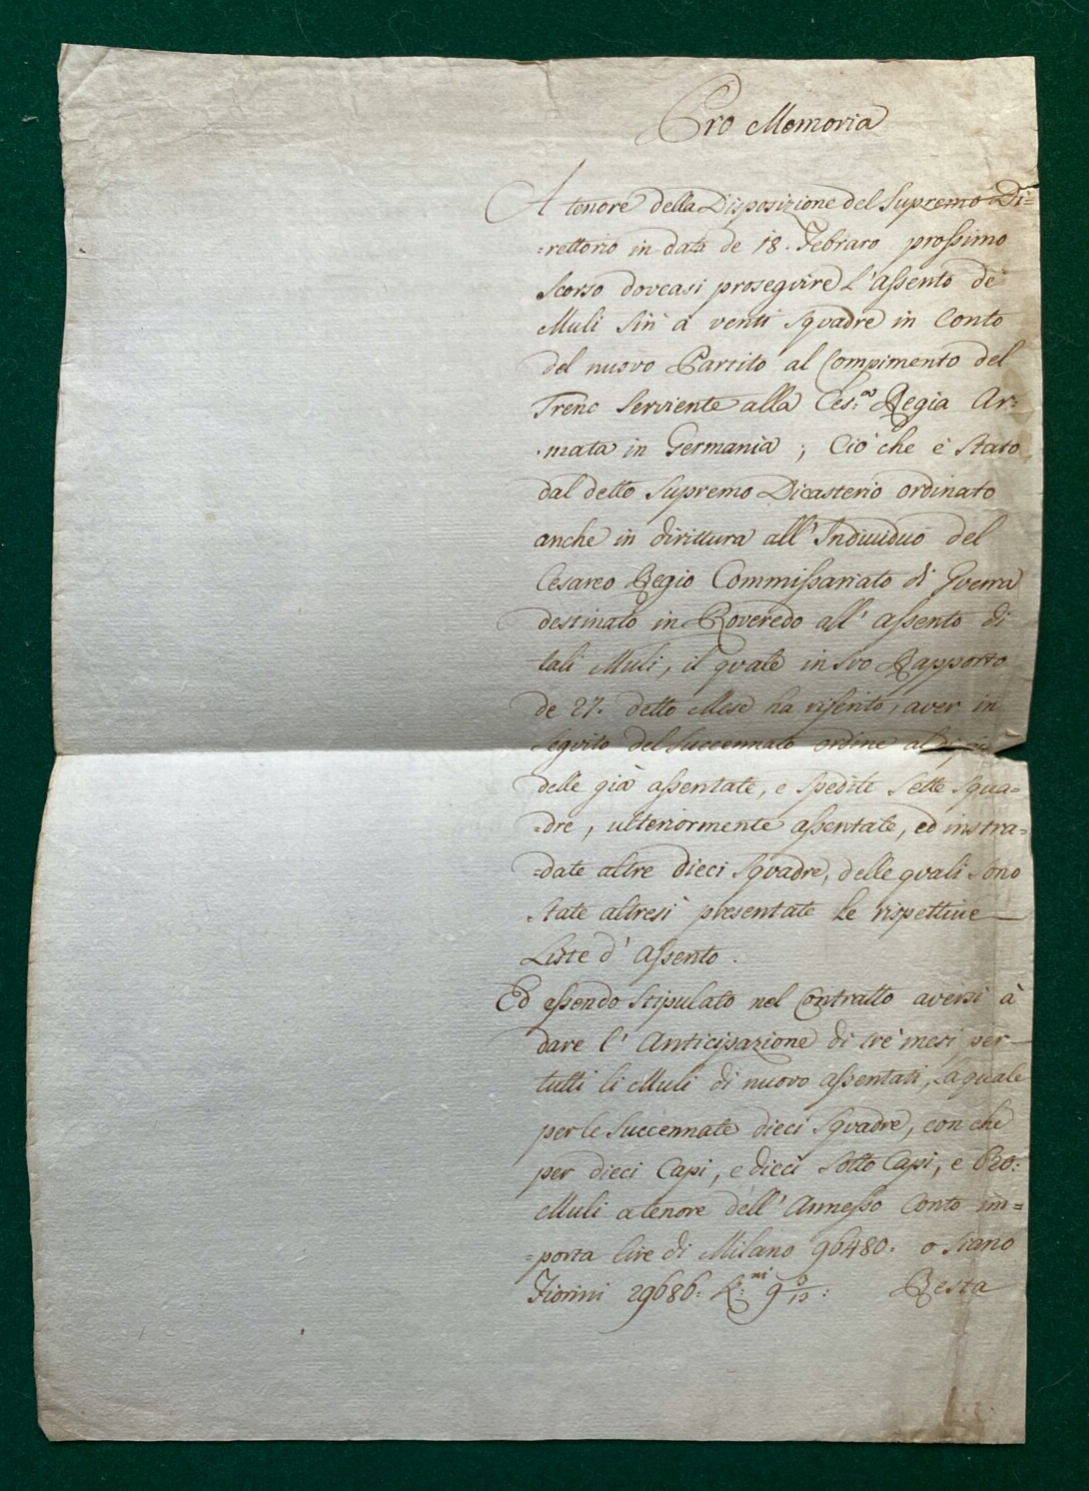 Pro Memoria
A tenore della Disposizione del Supremo Di=
=rettorio in data de 18. Febraro prossimo
Scorso dovcasi prosegvire l'assento de
Muli sin' à venti sqvadre in Conto
del nuovo Partito al Compimento del
Treno Serviente alla Ces.ª Regia Ar=
=mata in Germania ; Ciò che è stato
dal detto Supremo Dicasterio ordinato
anche in dirittura all' Individuo del
Cesareo Regio Commissariato di Gverra
destinato in Roveredo all' assento di
tali Muli, il qvale in svo Rapporto
de 27. detto Mese ha riferito, aver in
segvito del succennato ordine al
delle già assentate, e spedite sette squa=
=dre, ulteriormente assentate, ed instra=
=date altre dieci sqvadre, delle qvali sono
state altresì presentate le rispettive
Liste d' Assento.
Ed essendo stipulato nel Contratto aversi à
dare l' Anticipazione di tre mesi per
tutti li Muli di nuovo assentati, la quale
per le succennate dieci Sqvadre, con che
per dieci Capi, e dieci Sotto Capi, e
Muli a tenore dell' Annesso Conto im=
=porta lire di Milano 96480. o siano
Fiorini 29686: 9 Resta